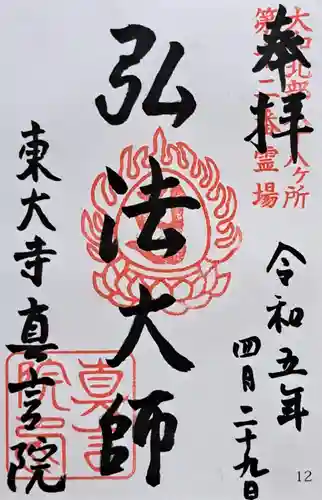 奉拝
大和北部八十八ヶ所
第十二番霊場
令和五年
四月二十九日
弘法大師
東大寺真言院
真言
院
12